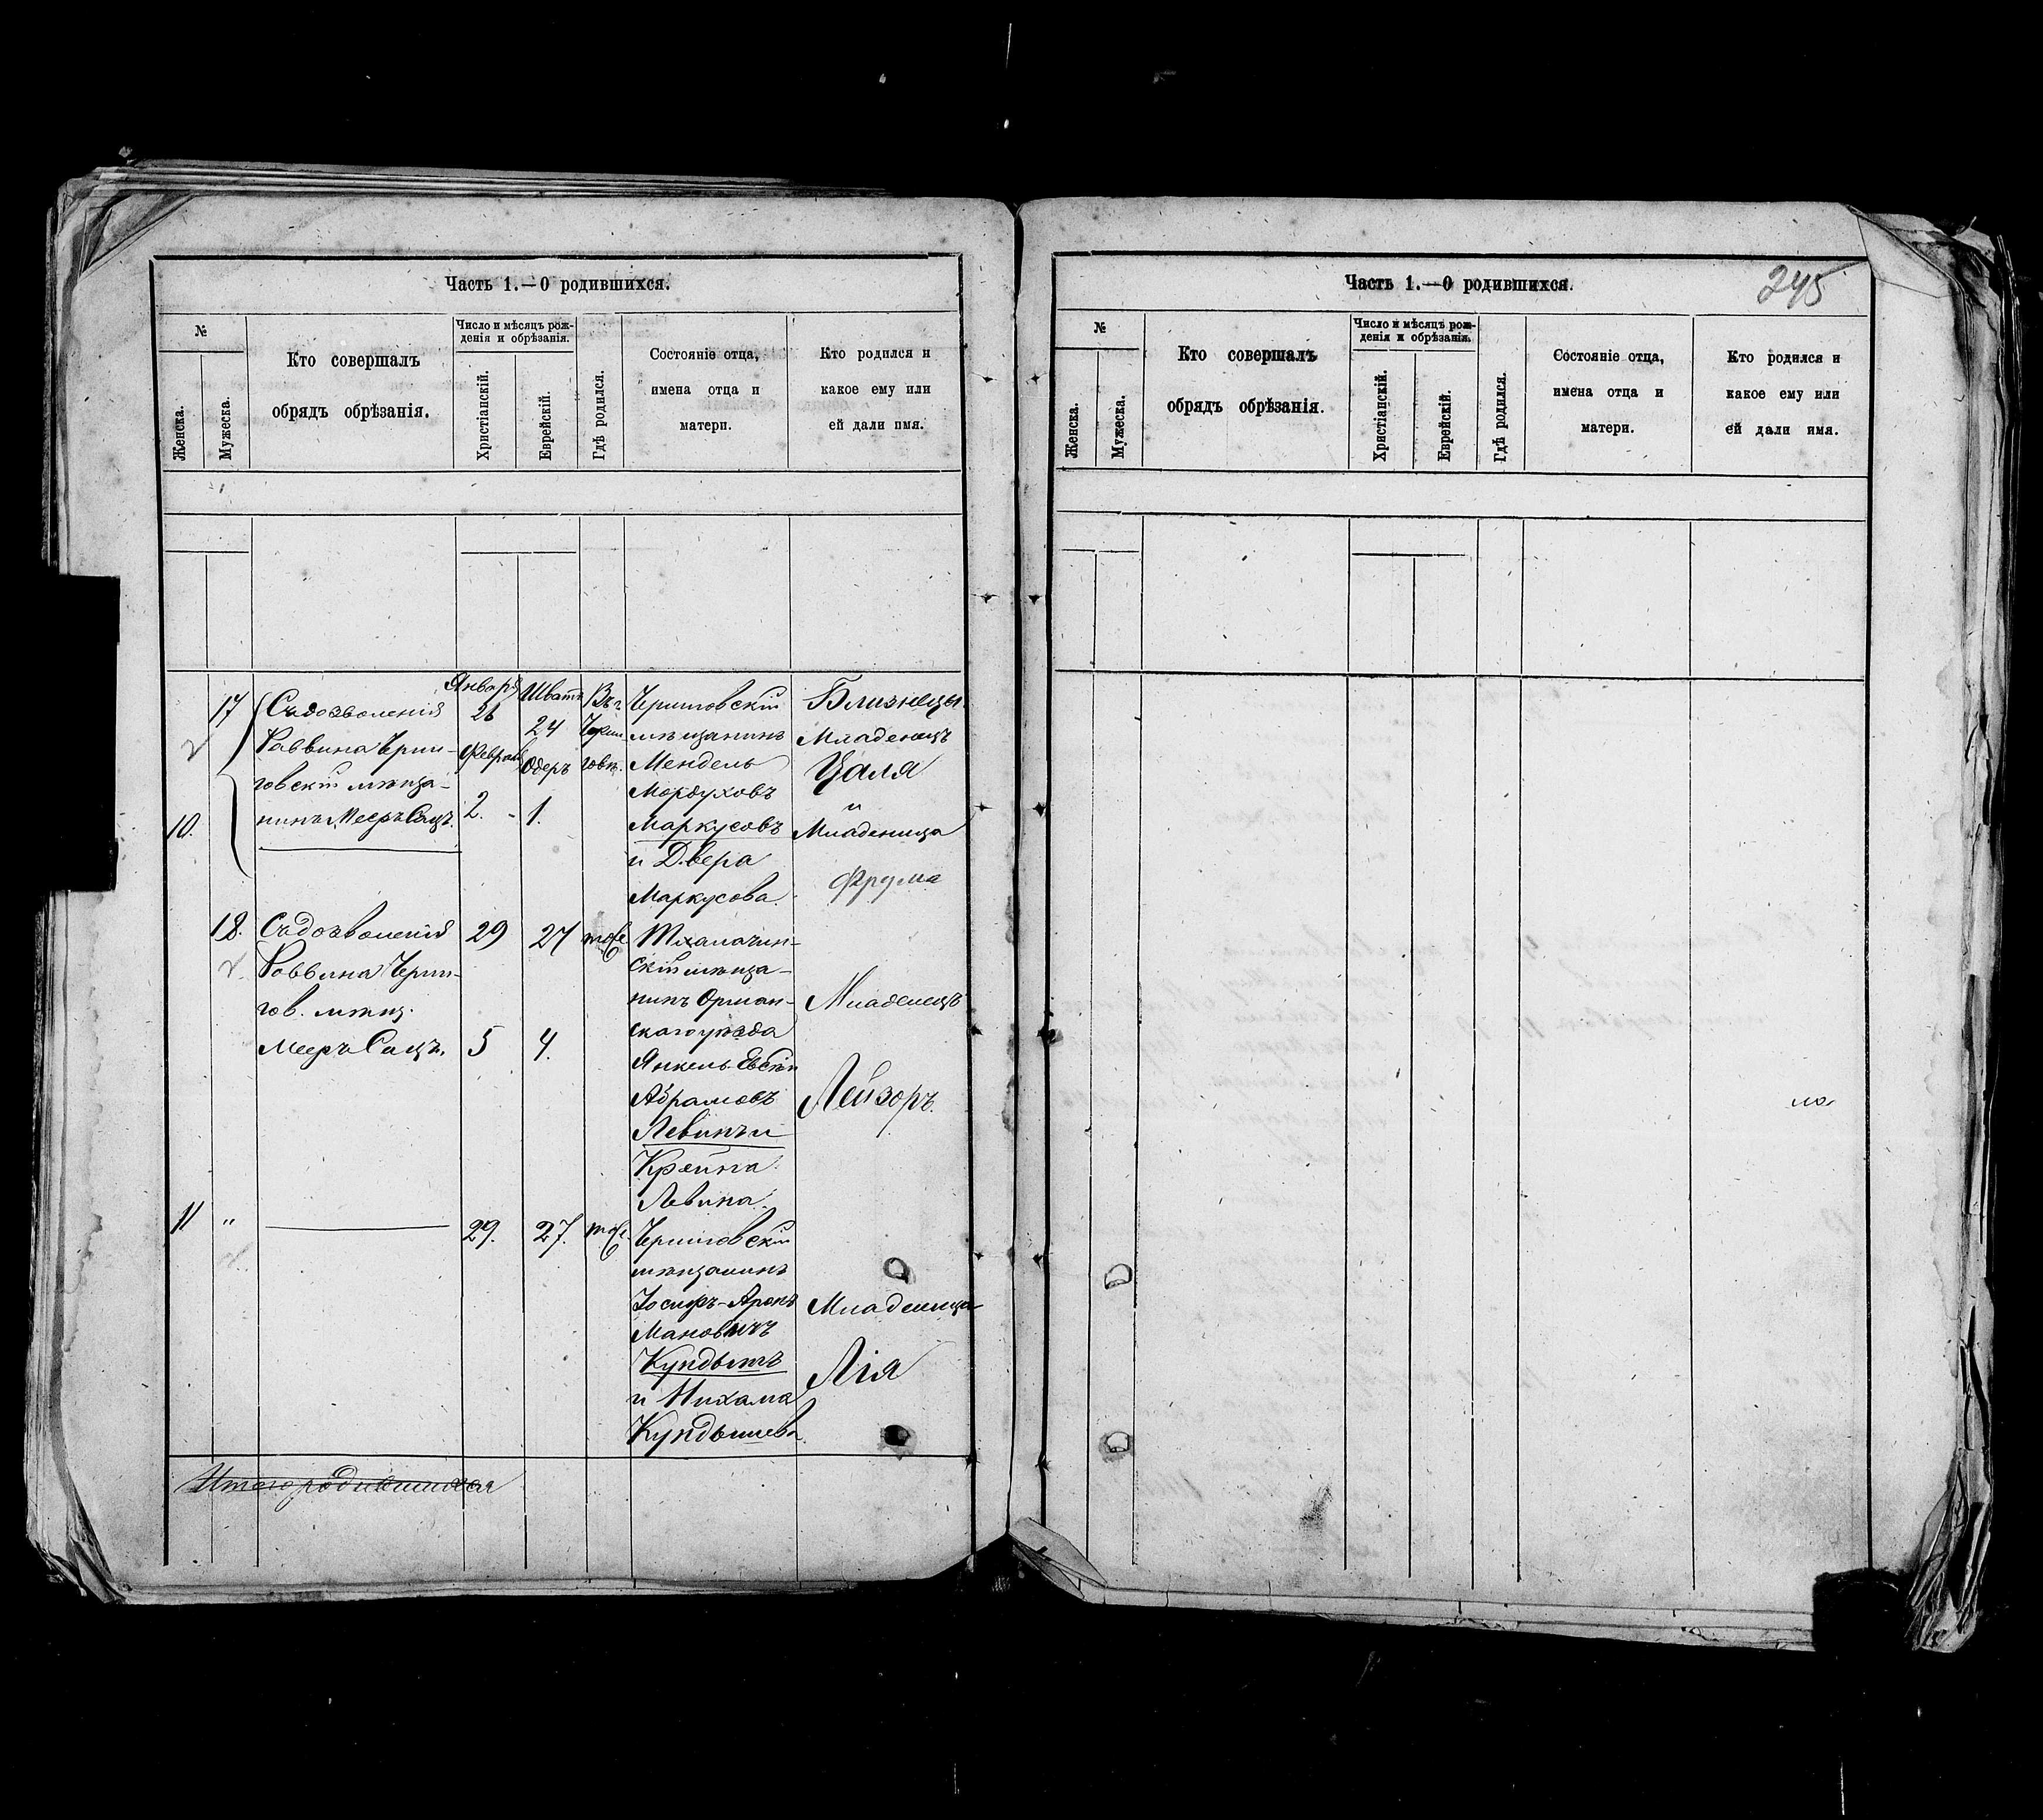 Часть 1.—О родившихся.
№
Женска.
Мужеска.
Кто совершалъ
обрядъ обрѣзанія.
Число и мѣсяцъ рож-
денія и обрѣзанія.
Христіанскій.
Еврейскій.
Гдѣ родился.
Состояніе отца,
имена отца и
матери.
Кто родился и
какое ему или
ей дали имя.
17
10.
Съдозволенія
Раввина Черни-
говскій мѣща-
нинъ Мееръ Сацъ.
Января
26
Февраля
2.
Шватъ
24
Одеръ
1.
Въ г.
Черни
говѣ.
Черниговскій
мѣщанинъ
Мендель
Мордуховъ
Маркусовъ
и Двера
Маркусова.
Близнецы.
Младенецъ
Цаля
и
Младеница
Фрума
18.
Съдозволенія
Раввина Черни-
гов. мѣщ.
Мееръ Сацъ.
29
5
27
4.
тоже
скій мѣща-
нинъ Оршан-
скаго уѣзда
Янкель
Абрамовъ
Левинъ и
Крейна
Левина.
Младенецъ
Лейзоръ.
11
"
29.
27.
тоже.
Черниговскій
мѣщанинъ
Іосифъ-Аронъ
Мановичъ
Кундышъ
и Нихама
Кундышева.
Младеница
Лія
Итого родившихся
Часть 1.—О родившихся.
245
№
Женска.
Мужеска.
Кто совершалъ
обрядъ обрѣзанія.
Число и мѣсяцъ рож-
денія и обрѣзанія.
Христіанскій.
Еврейскій.
Гдѣ родился.
Состояніе отца,
имена отца и
матери.
Кто родился и
какое ему или
ей дали имя.